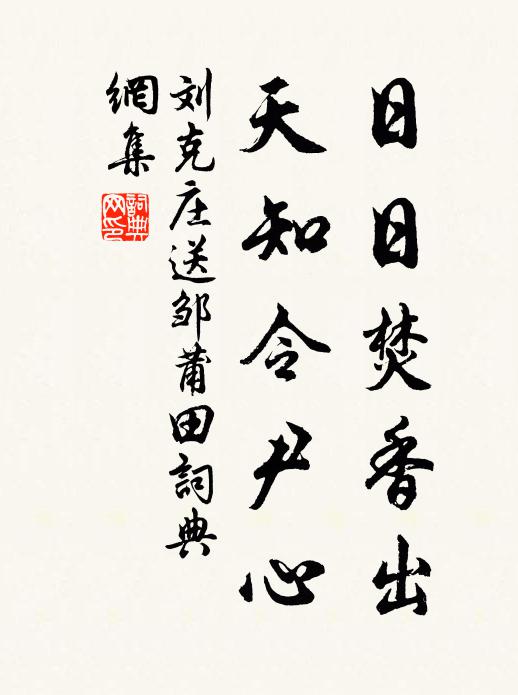 日日焚香出
天知令尹心
刘克庄送邹莆田詞典
網集
詞典
网印